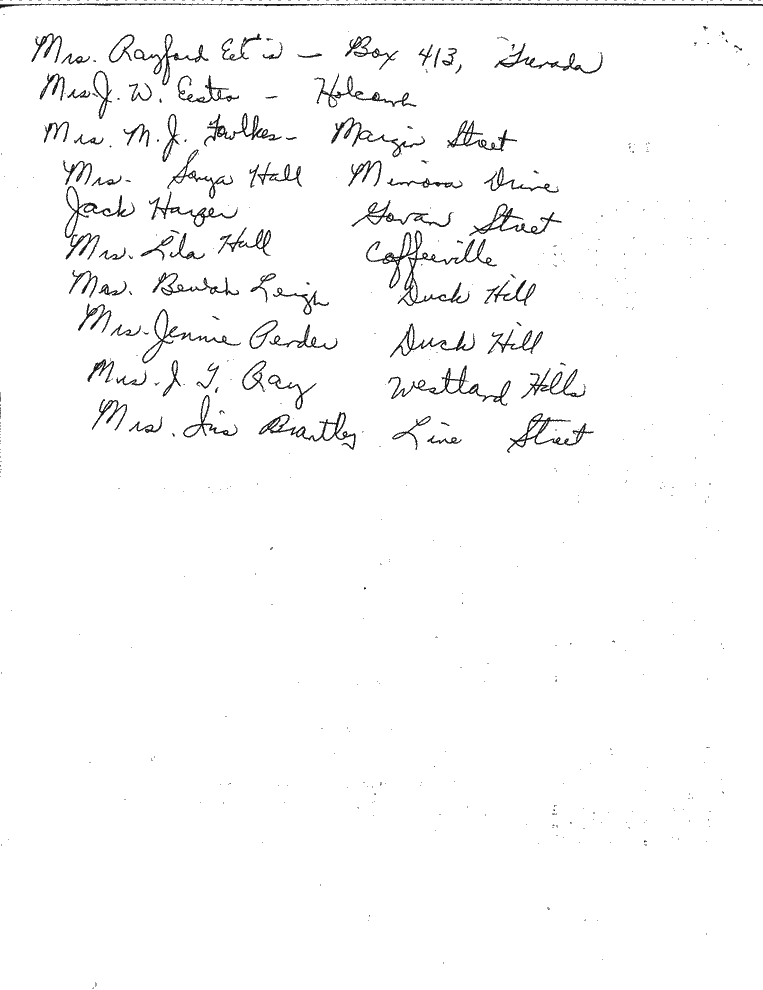 Mrs. Rayford - Box 413, Grenada
Mrs. J. W. - Holcomb
Mrs. M. J. Fowlkes - Margin Street
Mrs. Sonya Hall Mimosa Drive
Jack Harper Govan Street
Mrs. Lila Hall Coffeeville
Mrs. Beulah Leigh Duck Hill
Mrs. Jennie Perder Duck Hill
Mrs. J. T. Ray Westland Hills
Mrs. Iris Brantley Line Street